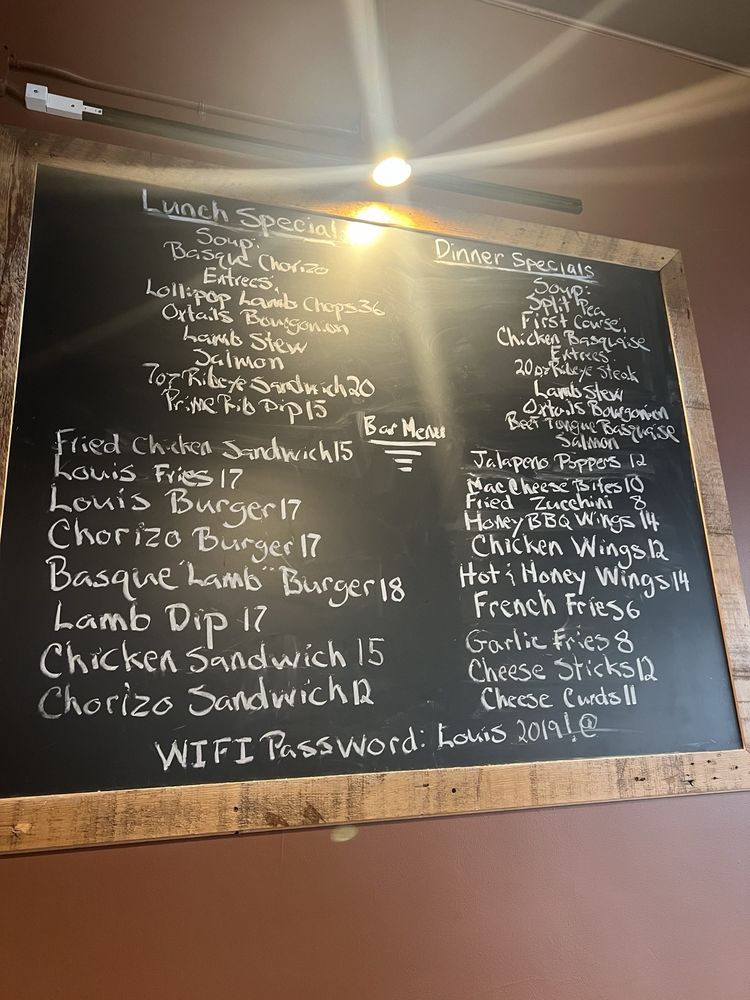 Lunch Special
Soup:
Basque Chorizo
Entrees:
Lollipop Lamb Chops 36
Oxtails Bourgonion
Lamb Stew
Salmon
7oz Ribeye Sandwich 20
Prime Rib Dip 15
Dinner Specials
Soup:
Split Pea
First Course:
Chicken Basquaise
Entrees:
20oz Ribeye Steak
Lamb Stew
Oxtails Bourgonion
Beef Tongue Basquaise
Salmon
Bar Menu
Fried Chicken Sandwich 15
Louis Fries 17
Louis Burger 17
Chorizo Burger 17
Basque "Lamb" Burger 18
Lamb Dip 17
Chicken Sandwich 15
Chorizo Sandwich 12
Jalapeno Poppers 12
Mac Cheese Bites 10
Fried Zucchini 8
Honey BBQ Wings 14
Chicken Wings 12
Hot & Honey Wings 14
French Fries 6
Garlic Fries 8
Cheese Sticks 12
Cheese Curds 11
WIFI Password: Louis 2019!@